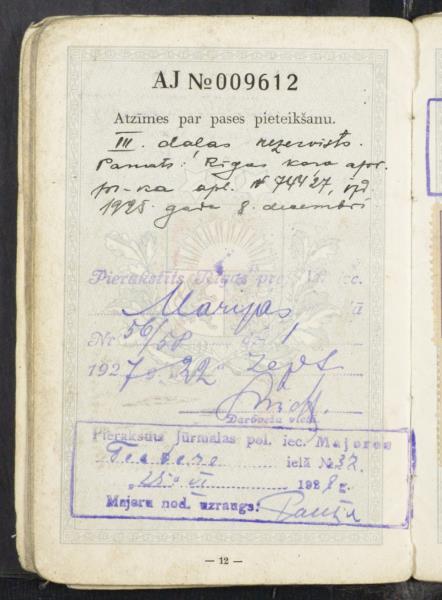 AJ № 009612
Atzīmes par pases pieteikšanu.
III. daļas rezervists.
Pamats: Rīgas kara apr.
pr-ka apl. № 74427, izd.
1925. gada 8. decembrī
Pierakstīts Rīgas iec.
Marijas
Nr. 56/58
1927 g. 22 sept.
Darbveža vietn.
Pierakstīts Jūrmalas pol. iec. Majoros
ielā № 32.
1928 g.
Majoru nod. uzraugs:
— 12 —